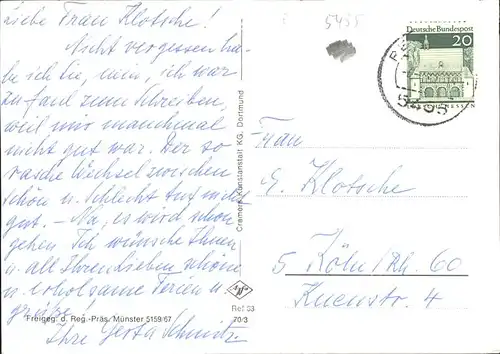 Liebe Frau Klotsche!
Nicht vergessen ha-
be ich Sie, nein, ich war
zu faul zum Schreiben,
weil mir manchmal
nicht gut war. Der so
rasche Wechsel zwischen
schön u. Schlecht tut nicht
gut. – Na, es wird schon
gehen. Ich wünsche Ihnen
u. all Ihren Lieben schöne
u. erholsame Ferien u.
grüße
Ihre Gerta Schmitz
Freigeg. d. Reg.-Präs. Münster 5159/67
Cramers Kunstanstalt KG, Dortmund
Ref 93
70/3
5455
Deutsche Bundespost
20
5455
Frau
E. Klotsche
5 Köln/Rh. 60
Kuenstr. 4